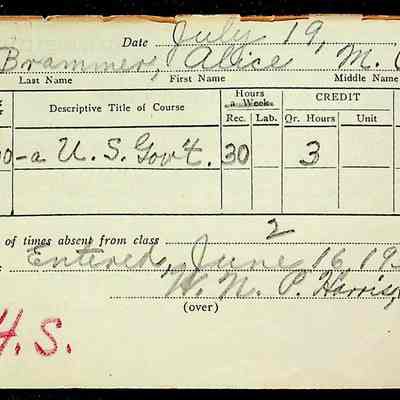 Date July 19,
Brammer, Alice M.
Last Name First Name Middle Name
Descriptive Title of Course Hours a Week CREDIT
Rec. Lab. Qr. Hours Unit
0-a U. S. Gov't. 30 3
of times absent from class 2
Entered, June 16, 19
W. N. P. Harris
(over)
H. S.